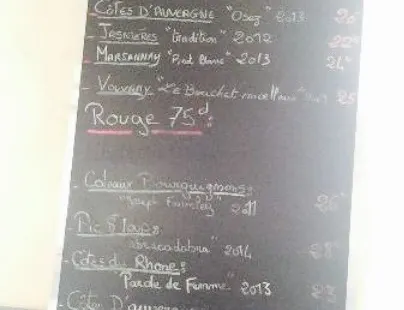 CÔTES D'AUVERGNE "Osez" 2013 20
- JASNIERES "tradition" 2012 22
- MARSANNAY "Pied Blanc" 2013 24
- VOUVRAY "Le Bouchet moelleux" 25
Rouge 75 d:
- Coteaux Bourguignons:
"Joseph Faiveley" 2011 26
- Pic St Loup:
"abracadabra" 2014 28
- Côtes du Rhone:
"Parole de Femme" 2013 23
- Côtes D'auvergne